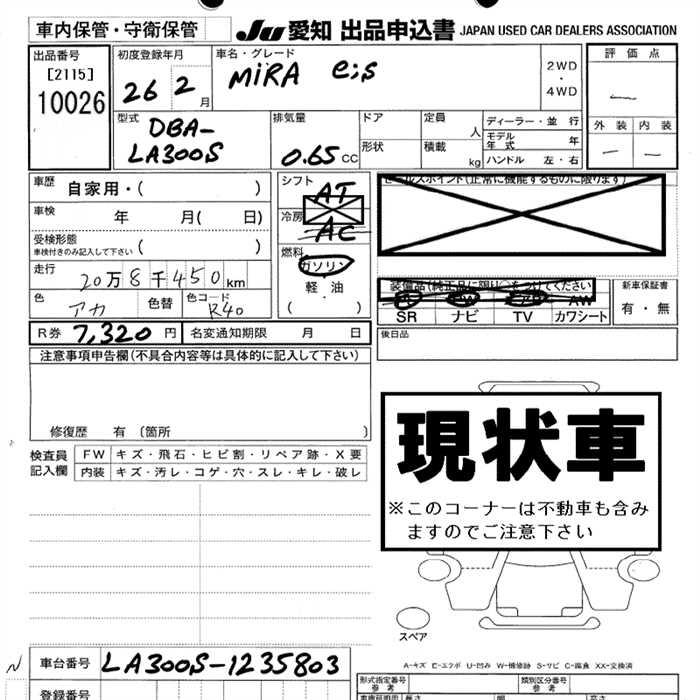 車内保管・守衛保管
JU 愛知 出品申込書 JAPAN USED CAR DEALERS ASSOCIATION
出品番号
[2115]
10026
初度登録年月
26 2月
車名・グレード
MIRA e;s
2WD
・
4WD
評価点
外装 内装
型式
DBA-
LA300S
排気量
0.65 CC
ドア
形状
定員 人
積載 kg
ディーラー・並行
モデル年式 年
ハンドル 左・右
車歴 自家用・( )
車検 年 月( 日)
受検形態
車検付きのみ記入して下さい ( )
走行 20万8千450km
色 アカ 色替 色コード R40
シフト AT
冷房 AC
燃料
ガソリン
・
軽・油
( )
セールスポイント(正常に機能するものに限ります)
装備品(純正品に限り○をつけてください)
AW
SR ナビ TV カワシート
新車保証書
有・無
R券 7,320円 名変通知期限 月 日
後日品
注意事項申告欄(不具合内容等は具体的に記入して下さい)
修復歴 有 〔箇所 〕
検査員記入欄
FW キズ・飛石・ヒビ割・リペア跡・X要
内装 キズ・汚レ・コゲ・穴・スレ・キレ・破レ
現状車
※このコーナーは不動車も含み
ますのでご注意下さい
スペア
A-キズ E-エクボ U-凹み W-補修跡 S-サビ C-腐食 XX-交換済
N
車台番号 LA300S-1235803
登録番号
型式指定番号
参考
類別区分番号
参考
長さ
高さ